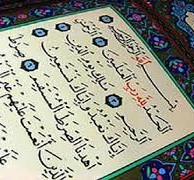 بسم الله الرحمن الرحيم
الحمد لله رب العالمين الرحمن
الرحيم مالك يوم الدين
إياك نعبد وإياك نستعين
اهدنا الصراط المستقيم
الذين أنعمت عليهم